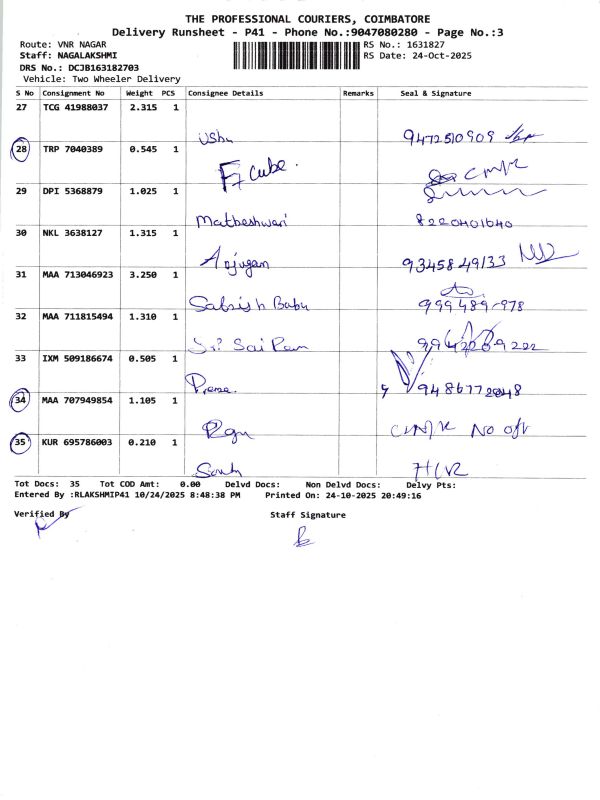 THE PROFESSIONAL COURIERS, COIMBATORE
Delivery Runsheet - P41 - Phone No.:9047080280 - Page No.:3
Route: VNR NAGAR RS No.: 1631827
Staff: NAGALAKSHMI RS Date: 24-Oct-2025
DRS No.: DCJB163182703
Vehicle: Two Wheeler Delivery
S No Consignment No Weight PCS Consignee Details Remarks Seal & Signature
27 TCG 41988037 2.315 1
Usha 9472510909
28 TRP 7040389 0.545 1
F7 Cube.
29 DPI 5368879 1.025 1
Matheshwari 8220401640
30 NKL 3638127 1.315 1
9345849133
31 MAA 713046923 3.250 1
Sabrish Babu 999489-978
32 MAA 711815494 1.310 1
Sri Sai Ram
33 IXM 509186674 0.505 1
9486772048
34 MAA 707949854 1.105 1
No off
35 KUR 695786003 0.210 1
Tot Docs: 35 Tot COD Amt: 0.00 Delvd Docs: Non Delvd Docs: Delvy Pts:
Entered By :RLAKSHMIP41 10/24/2025 8:48:38 PM Printed On: 24-10-2025 20:49:16
Verified By Staff Signature